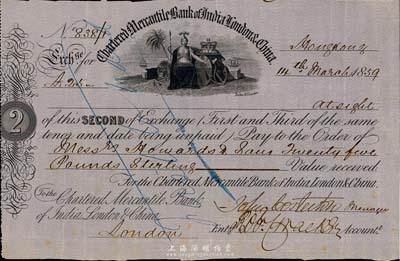 Chartered Mercantile Bank of India London & China
No 838/1
Exchge for
14th March 1859
At sight
2
of this SECOND of Exchange (First and Third of the same
tenor and date being unpaid) Pay to the Order of
Messrs & Sons Twenty five
Pounds Sterling Value received.
For the Chartered Mercantile Bank of India, London & China.
To the Chartered Mercantile Bank
of India, London & China
Manager
London
Entd Accountt